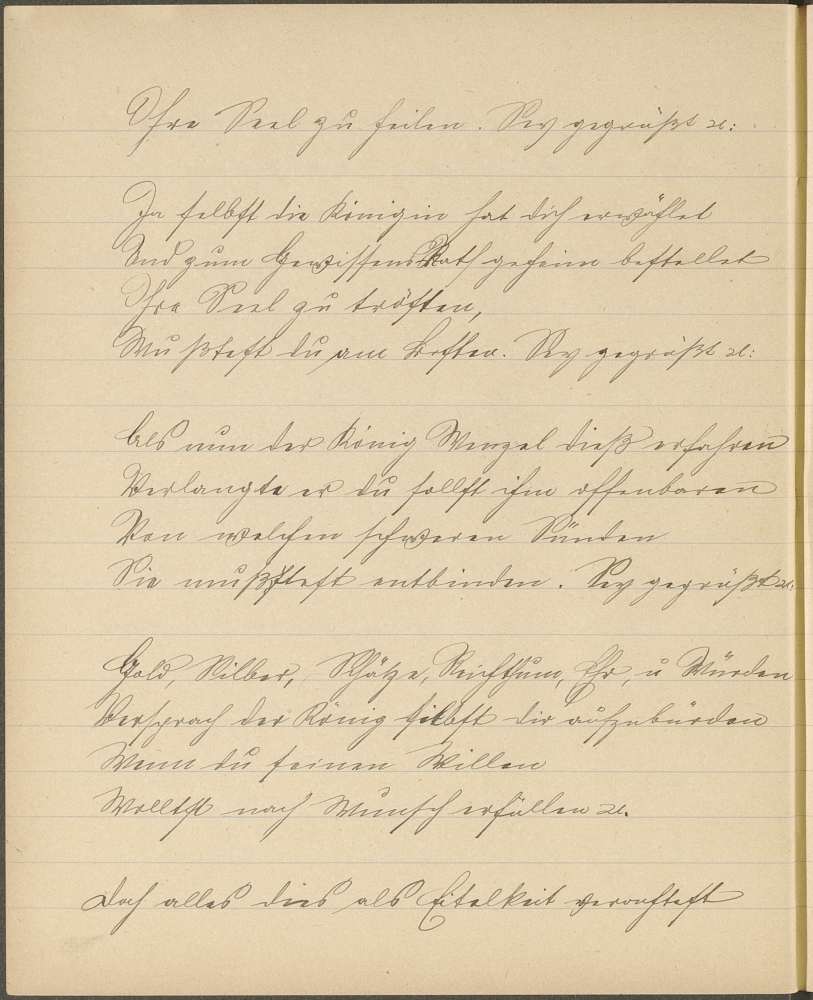 Ihre Seel zu heilen. Sey gegrüßt ꝛc:
Ja selbst die Königin hat dich erwählet
Und zum Gewissens Rath geheim bestellet
Ihre Seel zu trösten,
Mußtest du am besten. Sey gegrüßt ꝛc:
Als nun der König Wenzel dieß erfahren
Verlangte er du sollst ihm offenbaren
Von welchen schweren Sünden
Sie mußtest entbinden. Sey gegrüßt ꝛc:
Gold, Silber, Schätze, Reichthum, Ehr, u Würden
Versprach der König selbst dir aufzubürden
Wenn du seinen Willen
Wolltst nach Wunsch erfüllen ꝛc.
Doch alles dies als Eitelkeit verachtest